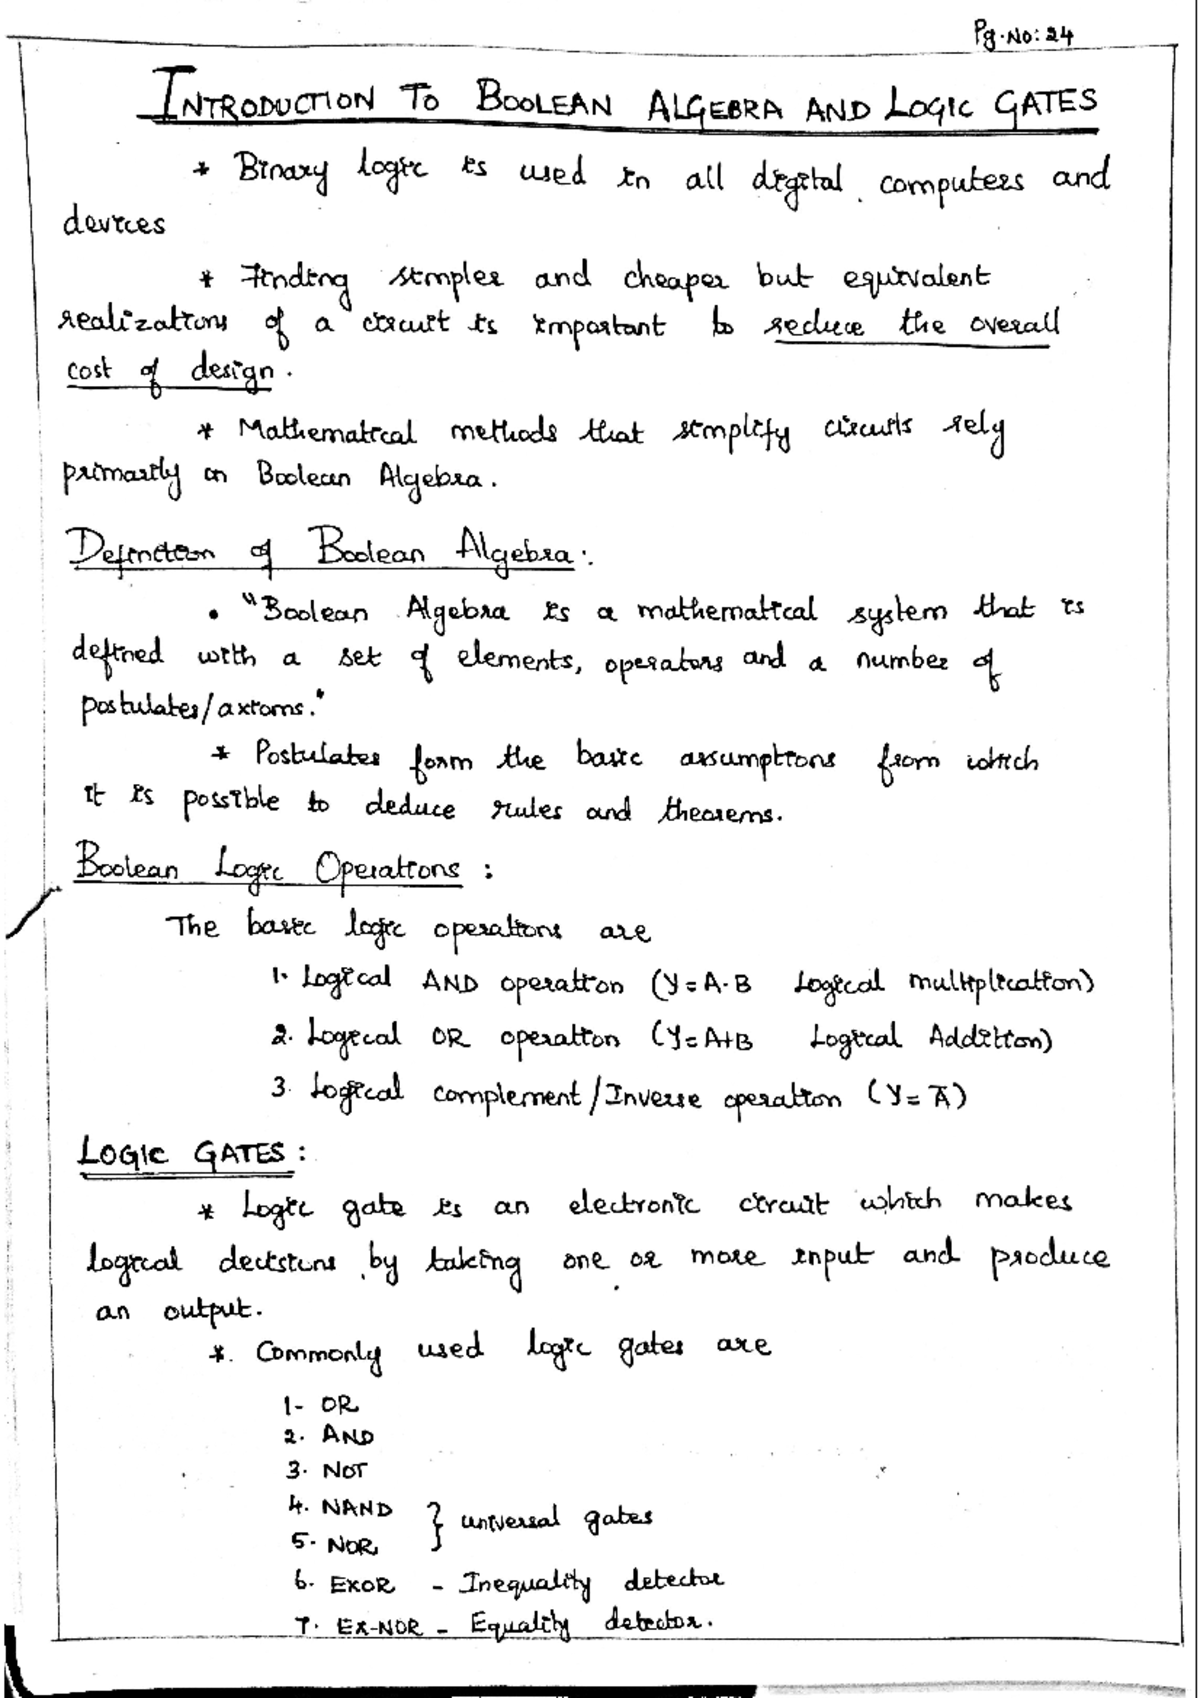 Pg.No:24
INTRODUCTION TO BOOLEAN ALGEBRA AND LOGIC GATES
* Binary logic is used in all digital computers and
devices
* Finding simpler and cheaper but equivalent
realizations of a circuit is important to reduce the overall
cost of design.
* Mathematical methods that simplify circuits rely
primarily on Boolean Algebra.
Definition of Boolean Algebra:
• "Boolean Algebra is a mathematical system that is
defined with a set of elements, operators and a number of
postulates/axioms."
* Postulates form the basic assumptions from which
it is possible to deduce rules and theorems.
Boolean Logic Operations :
The basic logic operations are
1. Logical AND operation (Y=A·B Logical multiplication)
2. Logical OR operation (Y=A+B Logical Addition)
3. Logical complement/Inverse operation (Y= A̅)
LOGIC GATES :
* Logic gate is an electronic circuit which makes
logical decisions by taking one or more input and produce
an output.
*. Commonly used logic gates are
1- OR
2. AND
3. NOT
4. NAND } universal gates
5. NOR
6. EXOR - Inequality detector
7. EX-NOR - Equality detector.